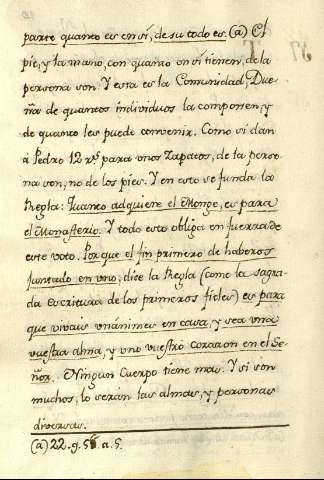 parte quanto es en sí, de su todo es. (a) El
pie, y la mano, con quanto en sí tienen, de la
persona son. Y esta es la Comunidad, Due-
ña de quantos individuos la componen, y
de quanto les puede convenir. Como si dan
à Pedro 12 rs. para unos Zapatos, de la perso-
na son, no de los pies. Y en esto se funda la
Regla: Quanto adquiere el Monge, es para
el Monasterio. Y todo esto obliga en fuerza de
este voto. Porque el fin primero de haberos
juntado en uno, dice la Regla (como la sagra-
da Escritura de los primeros fieles) es para
que vivais unánimes en casa, y sea una
vuestra alma, y uno vuestro corazon en el Se-
ñor. Ningun Cuerpo tiene mas. Y si son
muchos, lo serán las almas, y personas
diversas.
(a) 22. q. 58. a. 5.